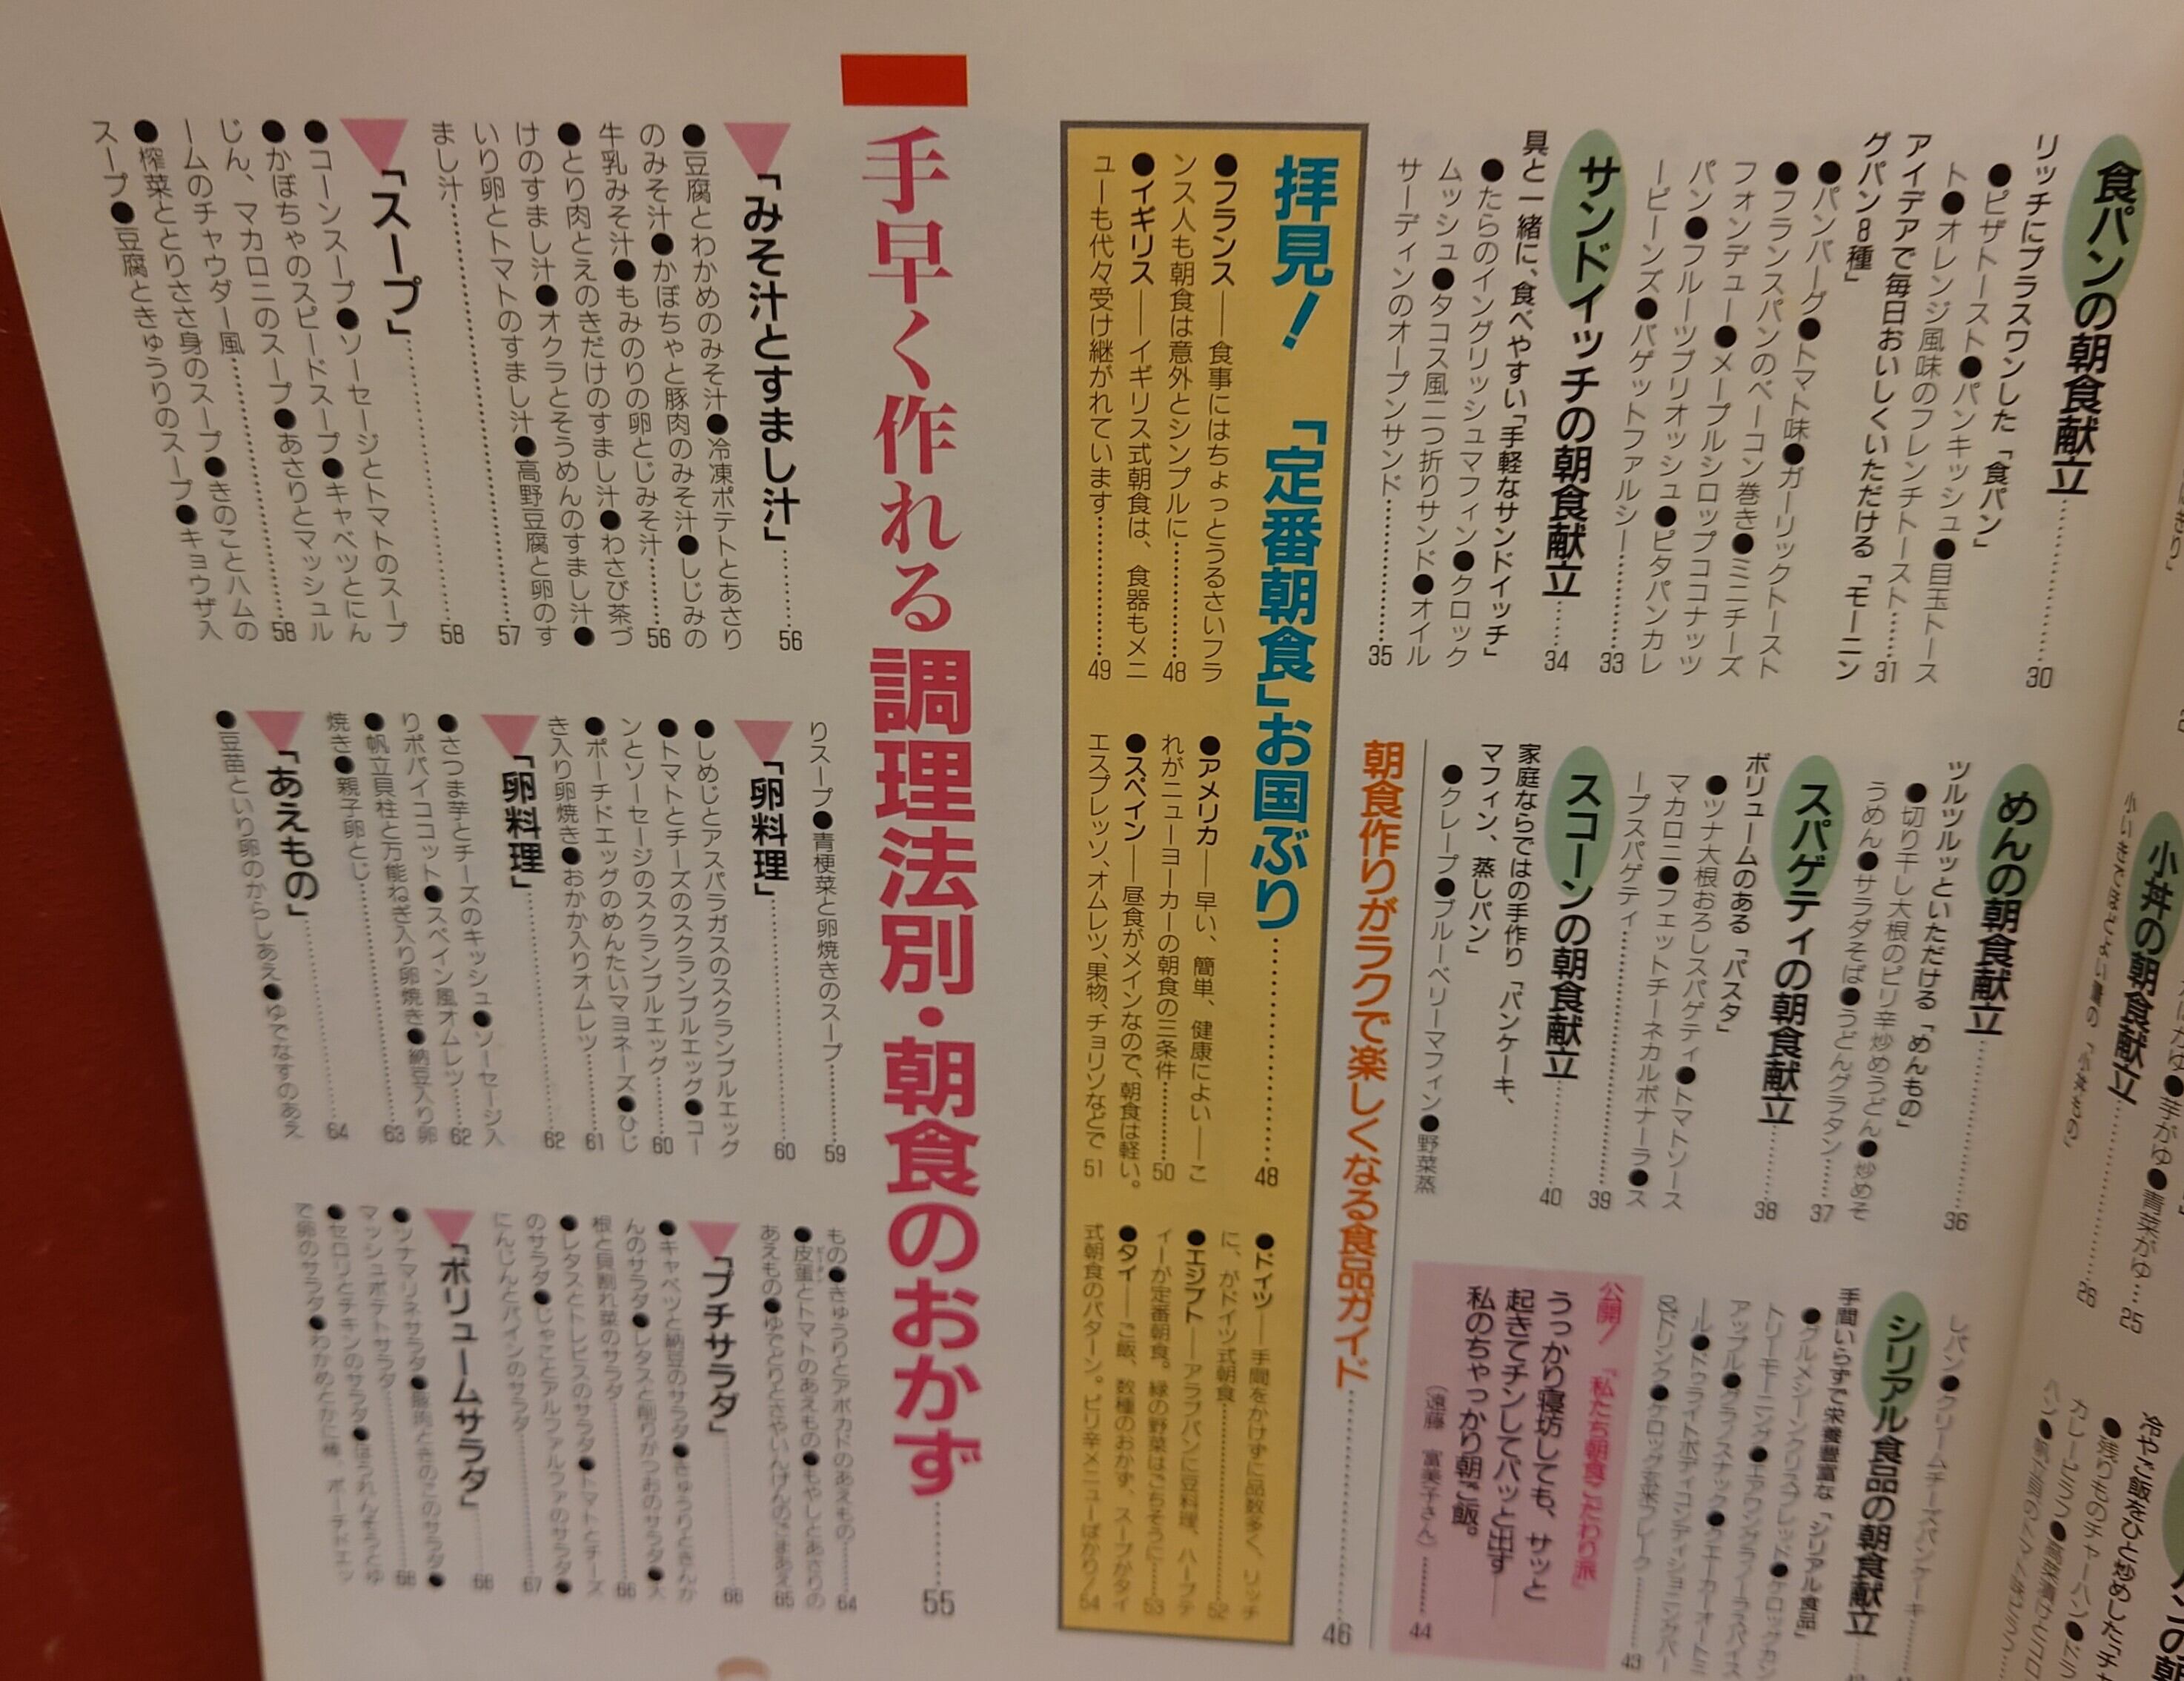 食パンの朝食献立……30
リッチにプラスワンした「食パン」
●ピザトースト●パンキッシュ●目玉トース
ト●オレンジ風味のフレンチトースト……31
アイデアで毎日おいしくいただける「モーニン
グパン8種」
●パンバーグ●トマト味●ガーリックトースト
●フランスパンのベーコン巻き●ミニチーズ
フォンデュー●メープルシロップココナッツ
パン●フルーツブリオッシュ●ピタパンカレ
ービーンズ●バゲットファルシー……33
サンドイッチの朝食献立……34
具と一緒に、食べやすい「手軽なサンドイッチ」
●たらのイングリッシュマフィン●クロック
ムッシュ●タコス風二つ折りサンド●オイル
サーディンのオープンサンド……35
小丼の朝食献立……26
めんの朝食献立……36
ツルツルッといただける「めんもの」
●切り干し大根のピリ辛炒めうどん●炒めそ
うめん●サラダそば●うどんグラタン……37
スパゲティの朝食献立……38
ボリュームのある「パスタ」
●ツナ大根おろしスパゲティ●トマトソース
マカロニ●フェットチーネカルボナーラ●ス
ープスパゲティ……39
スコーンの朝食献立……40
家庭ならではの手作り「パンケーキ、
マフィン、蒸しパン」
●クレープ●ブルーベリーマフィン●野菜蒸
しパン●クリームチーズパンケーキ
シリアル食品の朝食献立
手間いらずで栄養豊富な「シリアル食品」
43
公開!「私たち朝食こだわり派」
うっかり寝坊しても、サッと
起きてチンしてパッと出す——
私のちゃっかり朝ご飯。
(遠藤 富美子さん)……44
朝食作りがラクで楽しくなる食品ガイド……46
拝見!「定番朝食」お国ぶり……48
●フランス——食事にはちょっとうるさいフラ
ンス人も朝食は意外とシンプルに……48
●イギリス——イギリス式朝食は、食器もメニ
ューも代々受け継がれています……49
●アメリカ——早い、簡単、健康によい——こ
れがニューヨーカーの朝食の三条件……50
●スペイン——昼食がメインなので、朝食は軽い。
エスプレッソ、オムレツ、果物、チョリソなどで 51
●ドイツ——手間をかけずに品数多く、リッチ
に、がドイツ式朝食……52
●エジプト——アラブパンに豆料理、ハーブテ
ィーが定番朝食。緑の野菜はごちそうに……53
●タイ——ご飯、数種のおかず、スープがタイ
式朝食のパターン。ピリ辛メニューばかり! 54
手早く作れる調理法別・朝食のおかず……55
「みそ汁とすまし汁」……56
●豆腐とわかめのみそ汁●冷凍ポテトとあさり
のみそ汁●かぼちゃと豚肉のみそ汁●しじみの
牛乳みそ汁●もみのりの卵とじみそ汁……56
●とり肉とえのきだけのすまし汁●わさび茶づ
けのすまし汁●オクラとそうめんのすまし汁●
いり卵とトマトのすまし汁●高野豆腐と卵のす
まし汁……57
「スープ」……58
●コーンスープ●ソーセージとトマトのスープ
●かぼちゃのスピードスープ●キャベツとにん
じん、マカロニのスープ●あさりとマッシュル
ームのチャウダー風……58
●榨菜ととりささ身のスープ●きのことハムの
スープ●豆腐ときゅうりのスープ●キョウザ入
りスープ●青梗菜と卵焼きのスープ……59
「卵料理」……60
●しめじとアスパラガスのスクランブルエッグ
●トマトとチーズのスクランブルエッグ●コー
ンとソーセージのスクランブルエッグ……60
●ポーチドエッグのめんたいマヨネーズ●ひじ
き入り卵焼き●おかか入りオムレツ……61
「卵料理」……62
●さつま芋とチーズのキッシュ●ソーセージ入
りポパイココット●スペイン風オムレツ……62
●帆立貝柱と万能ねぎ入り卵焼き●納豆入り卵
焼き●親子卵とじ……63
「あえもの」……64
●豆苗といり卵のからしあえ●ゆでなすのあえ
もの●きゅうりとアボカドのあえもの……64
●皮蛋とトマトのあえもの●もやしとあさりの
あえもの●ゆでどりとさやいんげんのごまあえ 65
「プチサラダ」……66
●キャベツと納豆のサラダ●きゅうりときんか
んのサラダ●レタスと削りがつおのサラダ●大
根と貝割れ菜のサラダ……66
●レタスとトレビスのサラダ●トマトとチーズ
のサラダ●じゃことアルファルファのサラダ●
にんじんとパインのサラダ……67
「ボリュームサラダ」……68
●ツナマリネサラダ●豚肉ときのこのサラダ●
マッシュポテトサラダ……68
●セロリとチキンのサラダ●ほうれんそうとゆ
で卵のサラダ●わかめとかに棒、ポーチドエッ